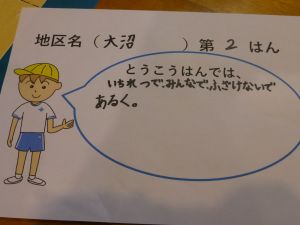 地区名（大沼　　　）第 2 はん
とうこうはんでは、
いちれつで、みんなで、ふざけないで
あるく。